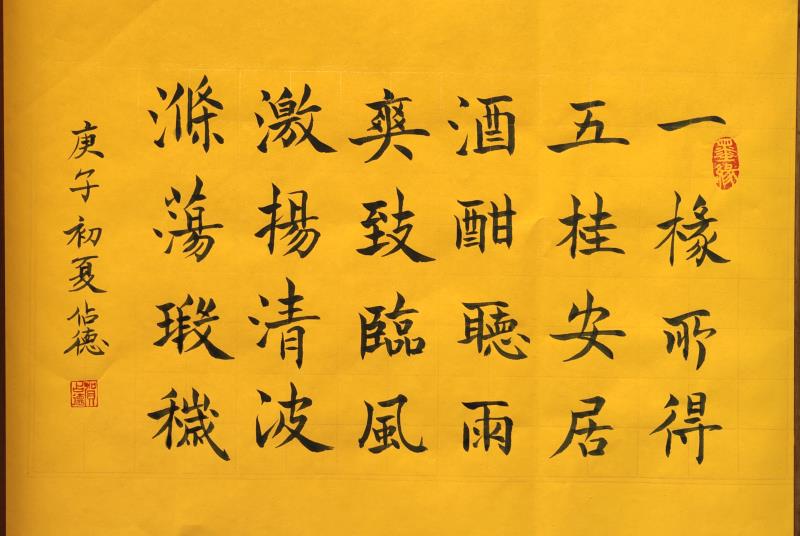 墨緣
一椽所得
五桂安居
酒酣聽雨
爽致臨風
激揚清波
滌蕩瑕穢
庚午初夏佔德